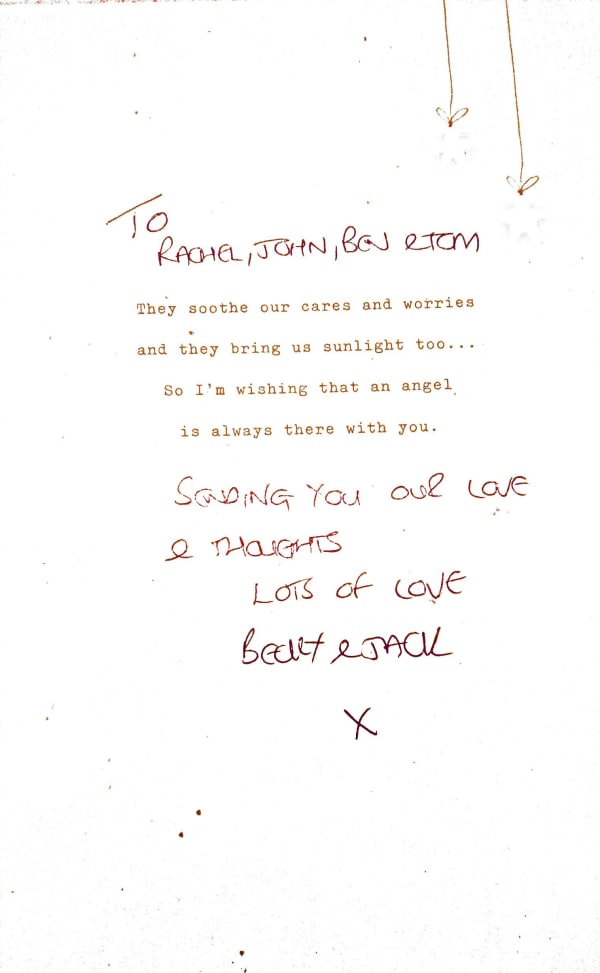 TO
RACHEL, JOHN, BEN & TOM
They soothe our cares and worries
and they bring us sunlight too...
So I'm wishing that an angel
is always there with you.
SENDING YOU OUR LOVE
& THOUGHTS
LOTS OF LOVE
BECKY & JACK
X